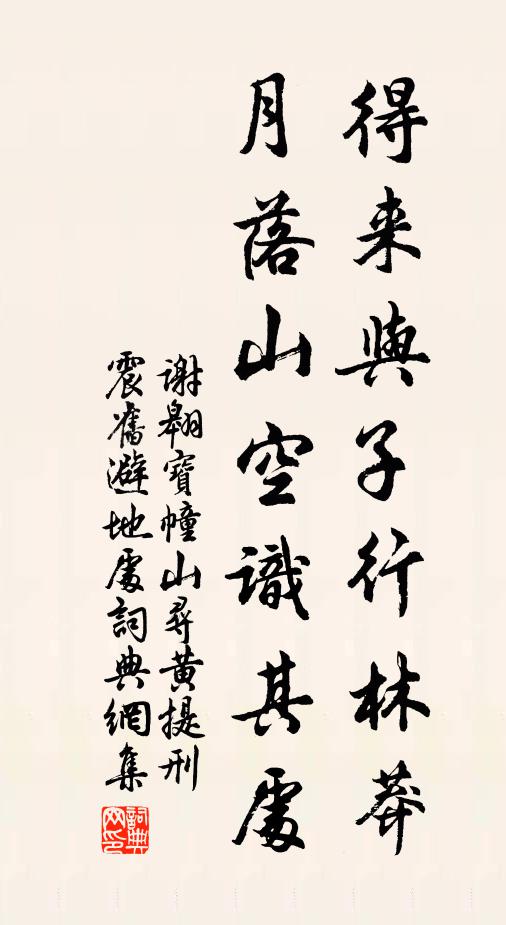 得来與子行林莽
月落山空識其處
謝翱寶幢山尋黄提刑
震舊避地處詞典網集
詞典網印